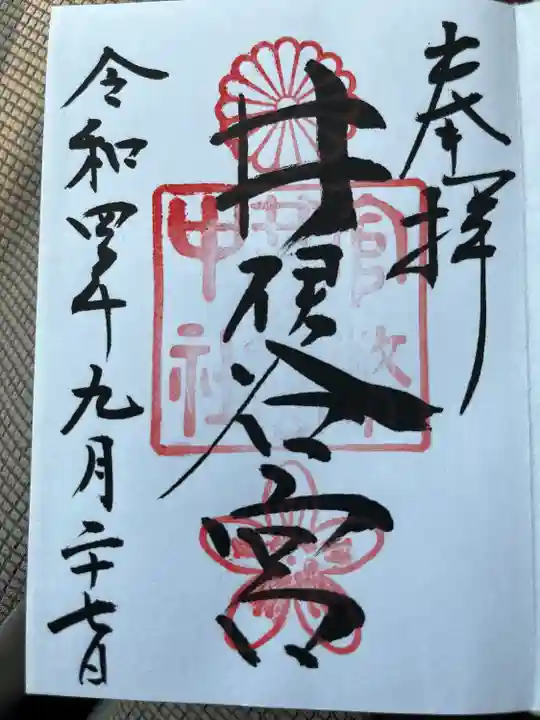 奉拝
井伊谷宮
令和四年九月二十七日